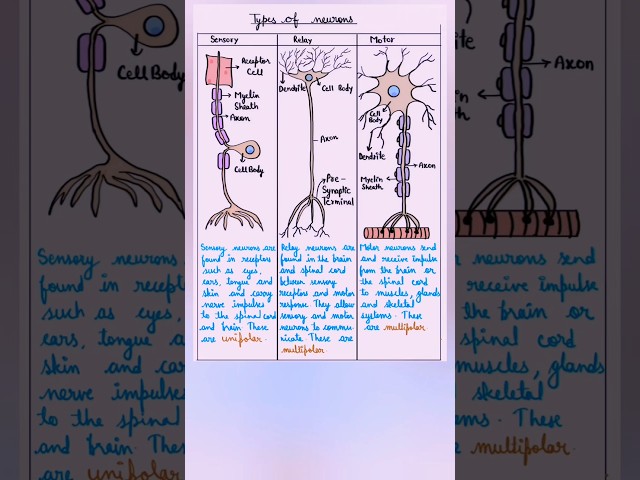 Types of neurons
Sensory
Receptor
Cell
Myelin
Sheath
Axon
Cell Body
Sensory neurons are
found in receptors
such as eyes,
ears, tongue and
skin and carry
nerve impulses
to the spinal cord
and brain These
are unipolar.
Relay
Dendrite
Cell Body
Axon
Pre-
Synaptic
Terminal
Relay neurons are
found in the brain
and spinal cord
between sensory
receptors and motor
response They allow
sensory and motor
neurons to commu-
nicate. These are
multipolar
Motor
Cell
Body
Dendrite
Axon
Myelin
Sheath
Motor neurons send
and receive impulse
from the brain or
the spinal cord
to muscles, glands
and skeletal
systems. These
are multipolar
Cell Body
Sensory neurons
found in
such as eyes,
ears, tongue
skin and
nerve impulses
to the spinal
and brain. These
are unipolar
Axon
send
receive impulse
brain or
spinal cord
muscles, glands
skeletal
These
multipolar.